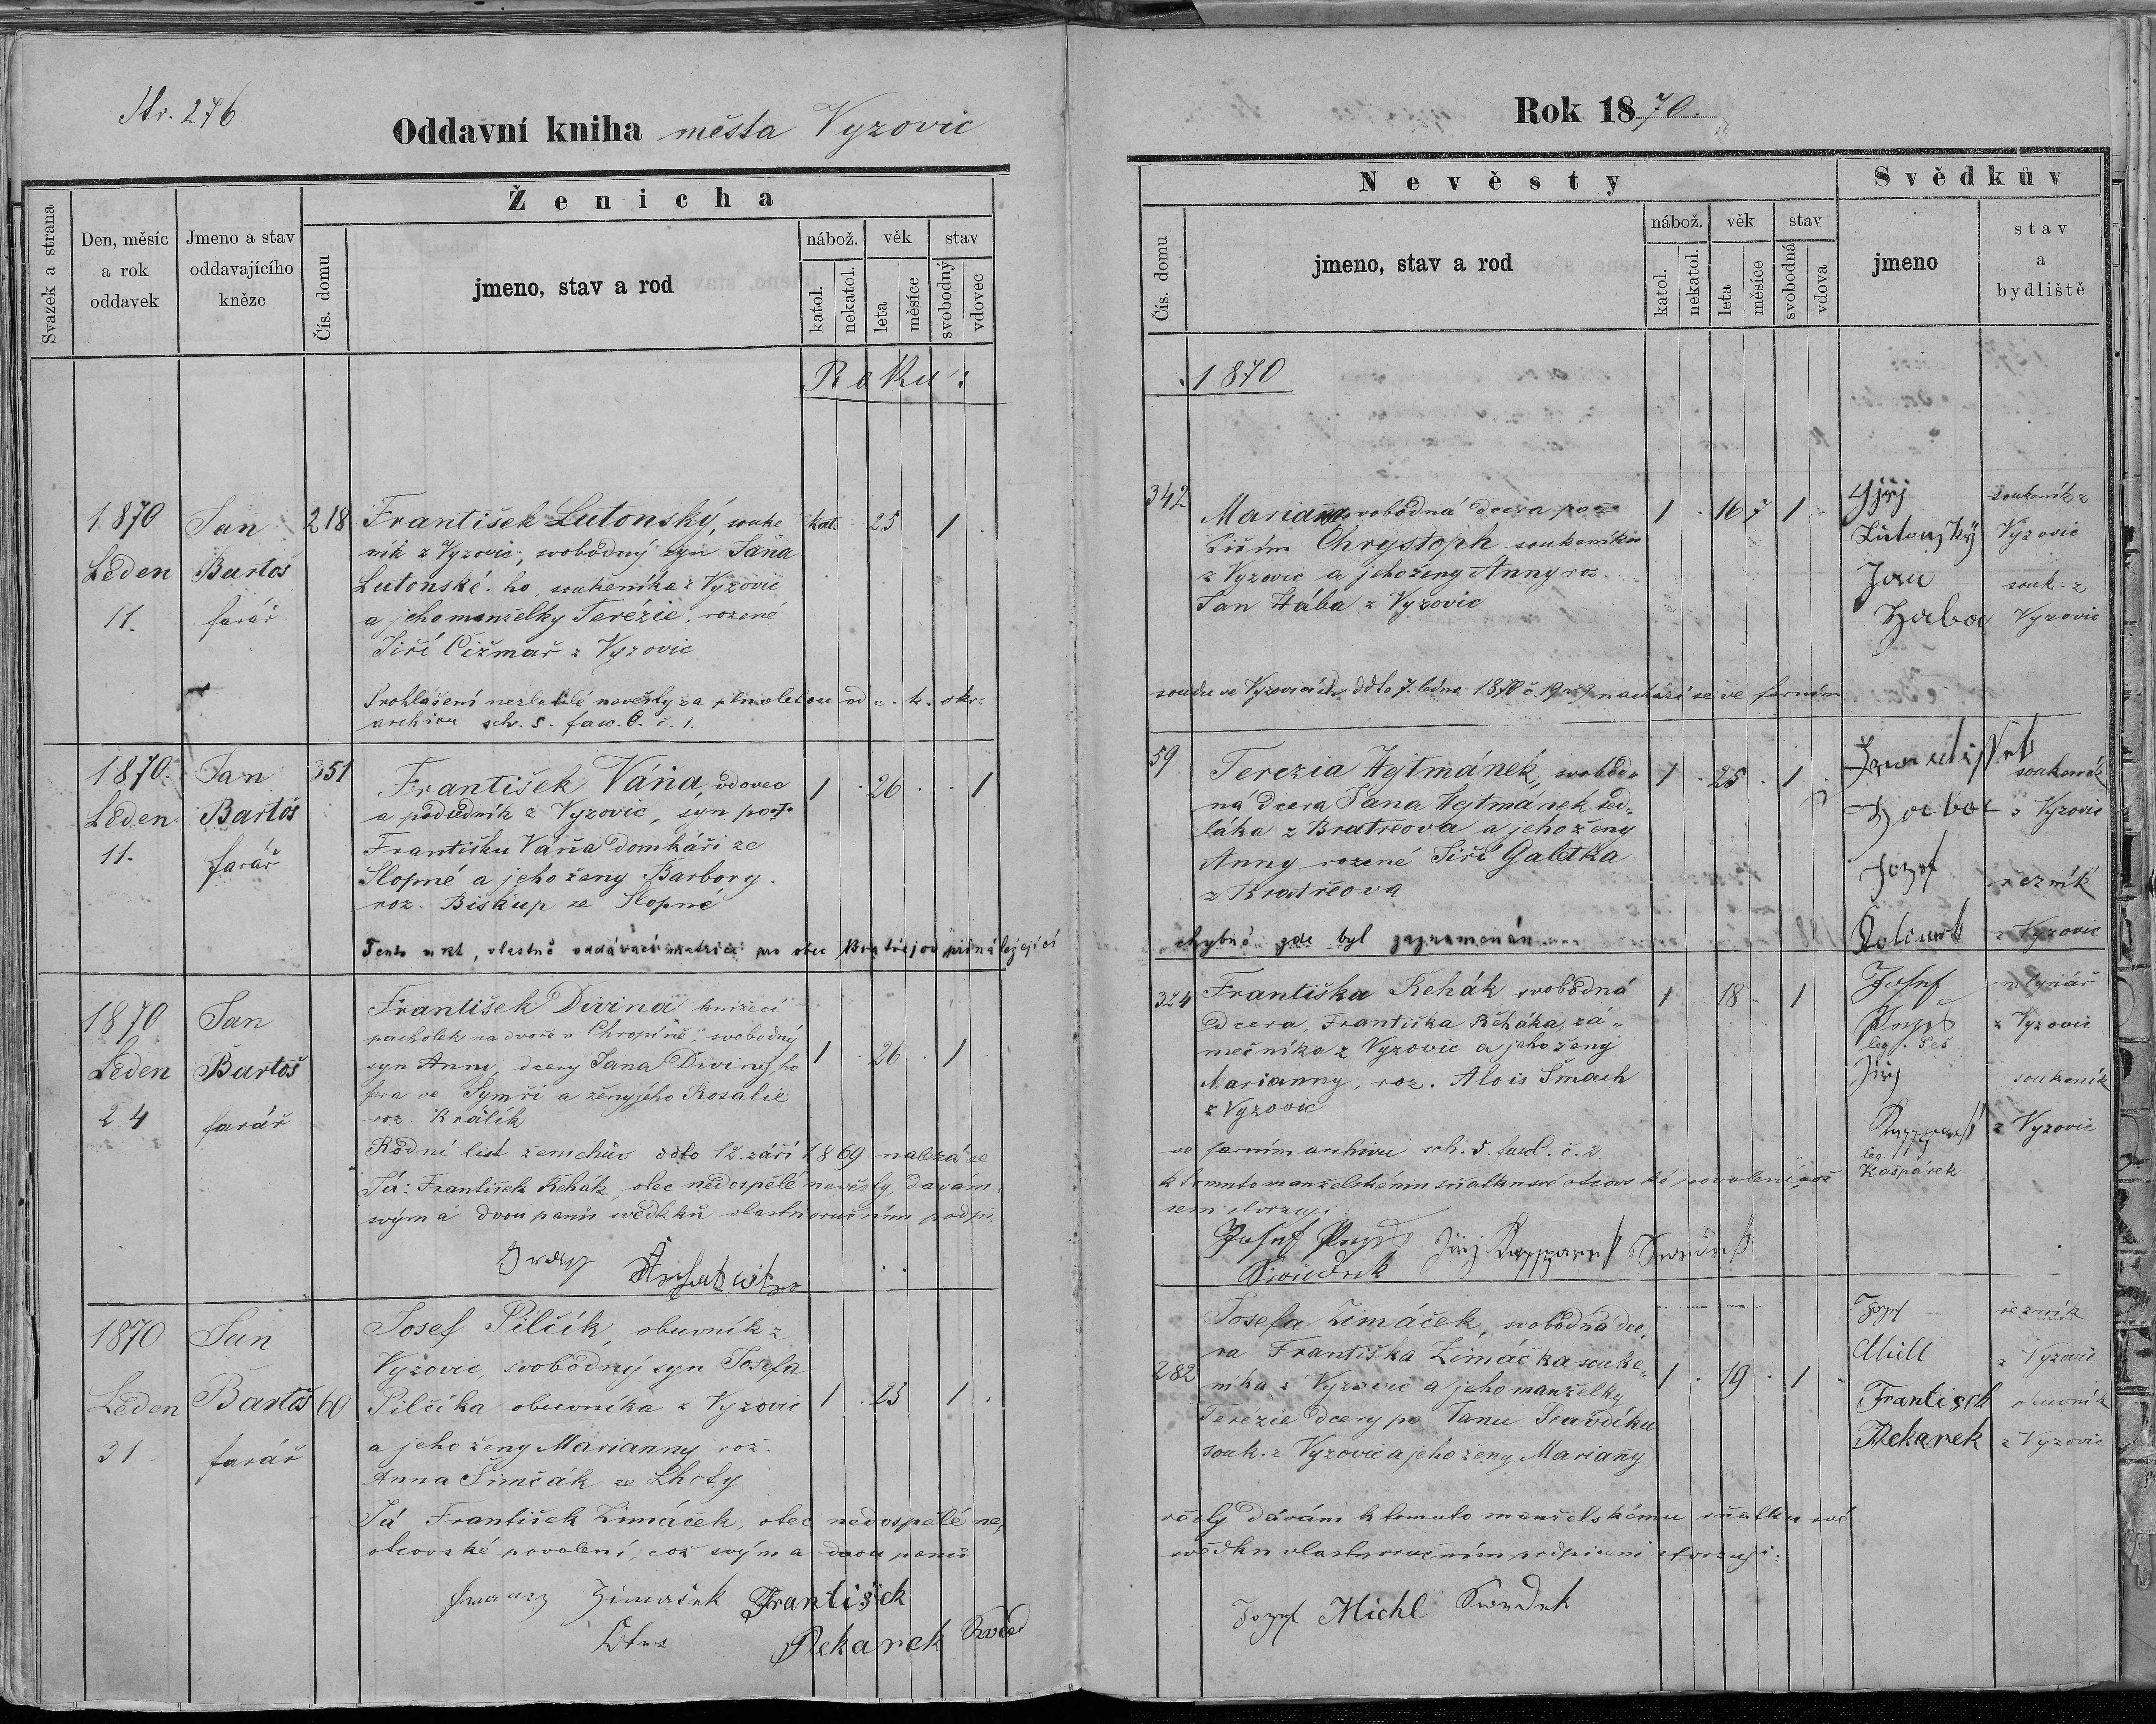 Str. 276
Oddavní kniha města Vyzovic
Ženicha
Svazek a strana
Den, měsíc a rok oddavek
Jmeno a stav oddavajícího kněze
Čís. domu
jmeno, stav a rod
nábož.
věk
stav
katol.
nekatol.
leta
měsíce
svobodný
vdovec
Roku:
1870 Jan 218 František Lutonský, souke kat. 25 1
ník z Vyzovic, svobodný syn Jana
Leden Bartoš Lutonské-ho, soukeníka z Vyzovic
11. farář a jeho manželky Terézie, rozené
Jiří Čižmař z Vyzovic
Prohlášení nezletilé nevěsty za plnoletou od c. k. okr.
archivu sch. 5. fasc. 6. č. 1.
1870. Jan 351 František Váňa, vdovec 1 26 1
Leden Bartoš a podsedník z Vyzovic, syn po
11. farář Františku Váňa domkáři ze
Slopné a jeho ženy Barbory
roz. Biskup ze Slopné
Tento akt, vlastně oddávací matrice pro obec Bratřejov přináležející
1870 Jan František Divina knížecí
pacholek na dvoře v Chropíně, svobodný
Leden Bartoš syn Anny, dcery Jana Diviny, 1 26 1
ve a ženy jeho Rosalie
24 farář roz. Králík
Rodní list ženichův ddto 12. září 1869 nalezá se
Já: František Řehák, otec nedospělé nevěsty, dávám
svým a dvou panů svědků vlastnoručním podpi
1870 Jan Josef Pilčík, obuvník z
Vyzovic, svobodný syn Josefa
Leden Bartoš 60 Pilčíka obuvníka z Vyzovic 1 23 1
31 farář a jeho ženy Marianny roz.
Anna Šimčák ze Lhoty
Já František Zimáček, otec nedospělé ne
otcovské povolení, což svým a dvou panů
Zimaček František
Pekarek
Rok 1870.
Nevěsty
Svědkův
Čís. domu
jmeno, stav a rod
nábož.
věk
stav
katol.
nekatol.
leta
měsíce
svobodná
vdova
jmeno
stav a bydliště
1870
342 Mariana svobodná dcera po 1 16 7 1 Jiřj soukeník z
Chrystoph soukeníku Lutonský Vyzovic
z Vyzovic a jeho ženy Anny roz. Jan souk. z
Jan Hába z Vyzovic Haba Vyzovic
soudu ve Vyzovicích ddto 7. ledna 1870 č. nachází se ve farním
59 Terezia Hejtmánek, svobod 1 25 1 soukeník
ná dcera Jana Hejtmánek sed Haba z Vyzovic
láka z Bratřeova a jeho ženy
Anny rozené Jiří Galetka Jozef řezník
z Bratřeova
chybně zde byl zaznamenán z Vyzovic
324 Františka Řehák svobodná 1 18 1 Josef mlynář
dcera, Františka Řeháka, zá z Vyzovic
mečníka z Vyzovic a jeho ženy leg. Peš
Marianny, roz. Alois Šmach Jiřj soukeník
z Vyzovic z Vyzovic
ve farním archivu sch. 5. fascl. č. 2. leg.
k tomuto manželskému sňatku své otcovské povolení, což Kašpárek
sem stvrzuji
Josef Jiřj
Josefa Zimáček, svobodná dce Jozef řezník
ra Františka Zimáčka souke Michl z Vyzovic
282 níka z Vyzovic a jeho manželky 1 19 1
Terézie dcery po Janu Pravdíku Frantisch obuvník
souk. z Vyzovic a jeho ženy Mariany Pekarek z Vyzovic
věsty dávám k tomuto manželskému sňatku své
svědku vlastnoručním podpisemi stvrzuji:
Jozef Michl